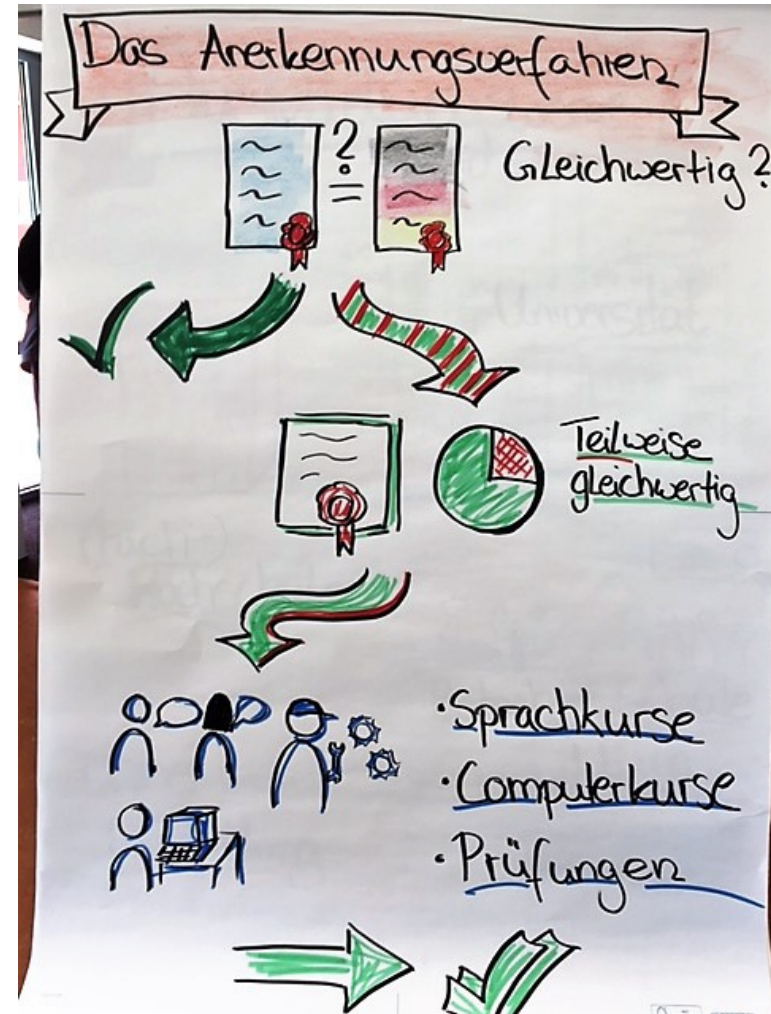 Das Anerkennungsverfahren
?
=
Gleichwertig?
Teilweise
gleichwertig
·Sprachkurse
·Computerkurse
·Prüfungen